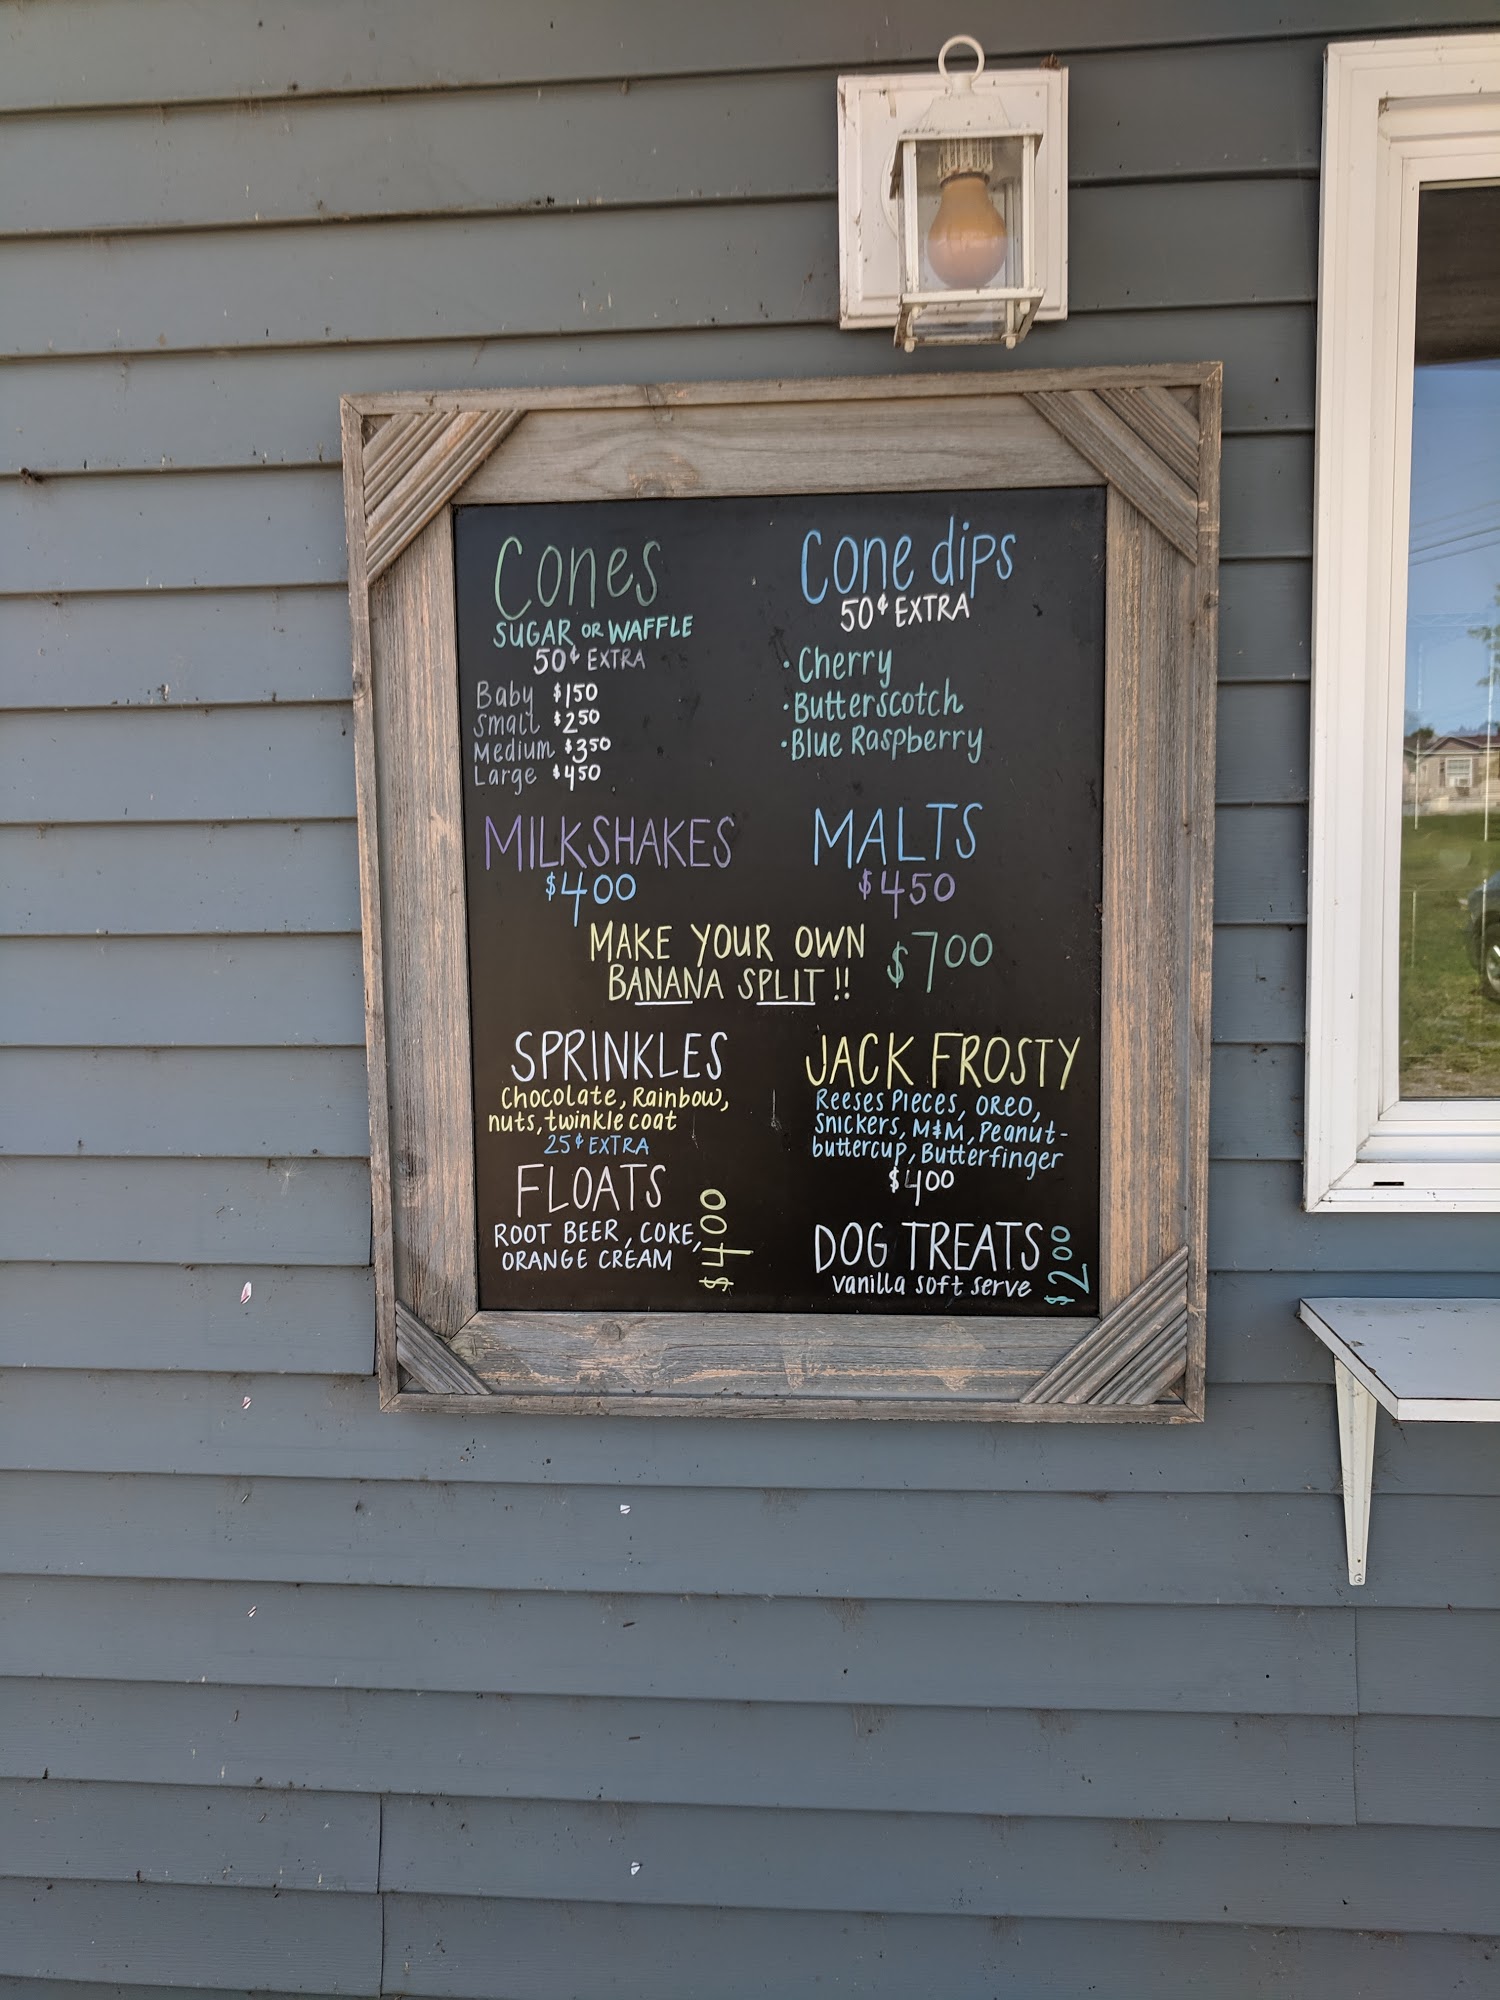 Cones
SUGAR OR WAFFLE
50¢ EXTRA
Baby $150
Small $250
Medium $350
Large $450
Cone dips
50¢ EXTRA
• Cherry
• Butterscotch
• Blue Raspberry
MILKSHAKES
$400
MALTS
$450
MAKE YOUR OWN
BANANA SPLIT!!
$700
SPRINKLES
Chocolate, Rainbow,
nuts, twinkle coat
25¢ EXTRA
JACK FROSTY
Reeses Pieces, OREO,
Snickers, M&M, Peanut-
buttercup, Butterfinger
$400
FLOATS
ROOT BEER, COKE,
ORANGE CREAM
$400
DOG TREATS
vanilla soft serve
$200